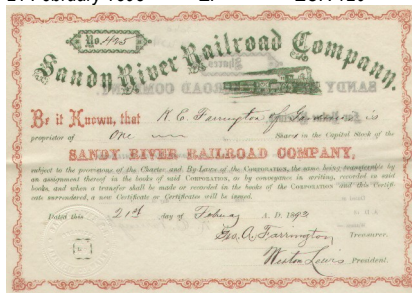 No. 425
Sandy River Railroad Company.
Be it Known, that of is
proprietor of One Share in the Capital Stock of the
SANDY RIVER RAILROAD COMPANY,
subject to the provisions of the Charter and By-Laws of the CORPORATION, the same being transferable by
an assignment thereof in the books of said CORPORATION, or by conveyance in writing, recorded in said
books, and when a transfer shall be made or recorded in the books of the CORPORATION and this Certifi-
cate surrendered, a new Certificate or Certificates will be issued.
Dated this 21st day of A. D. 1893
Geo. A. Farrington Treasurer.
Weston Lewis President.